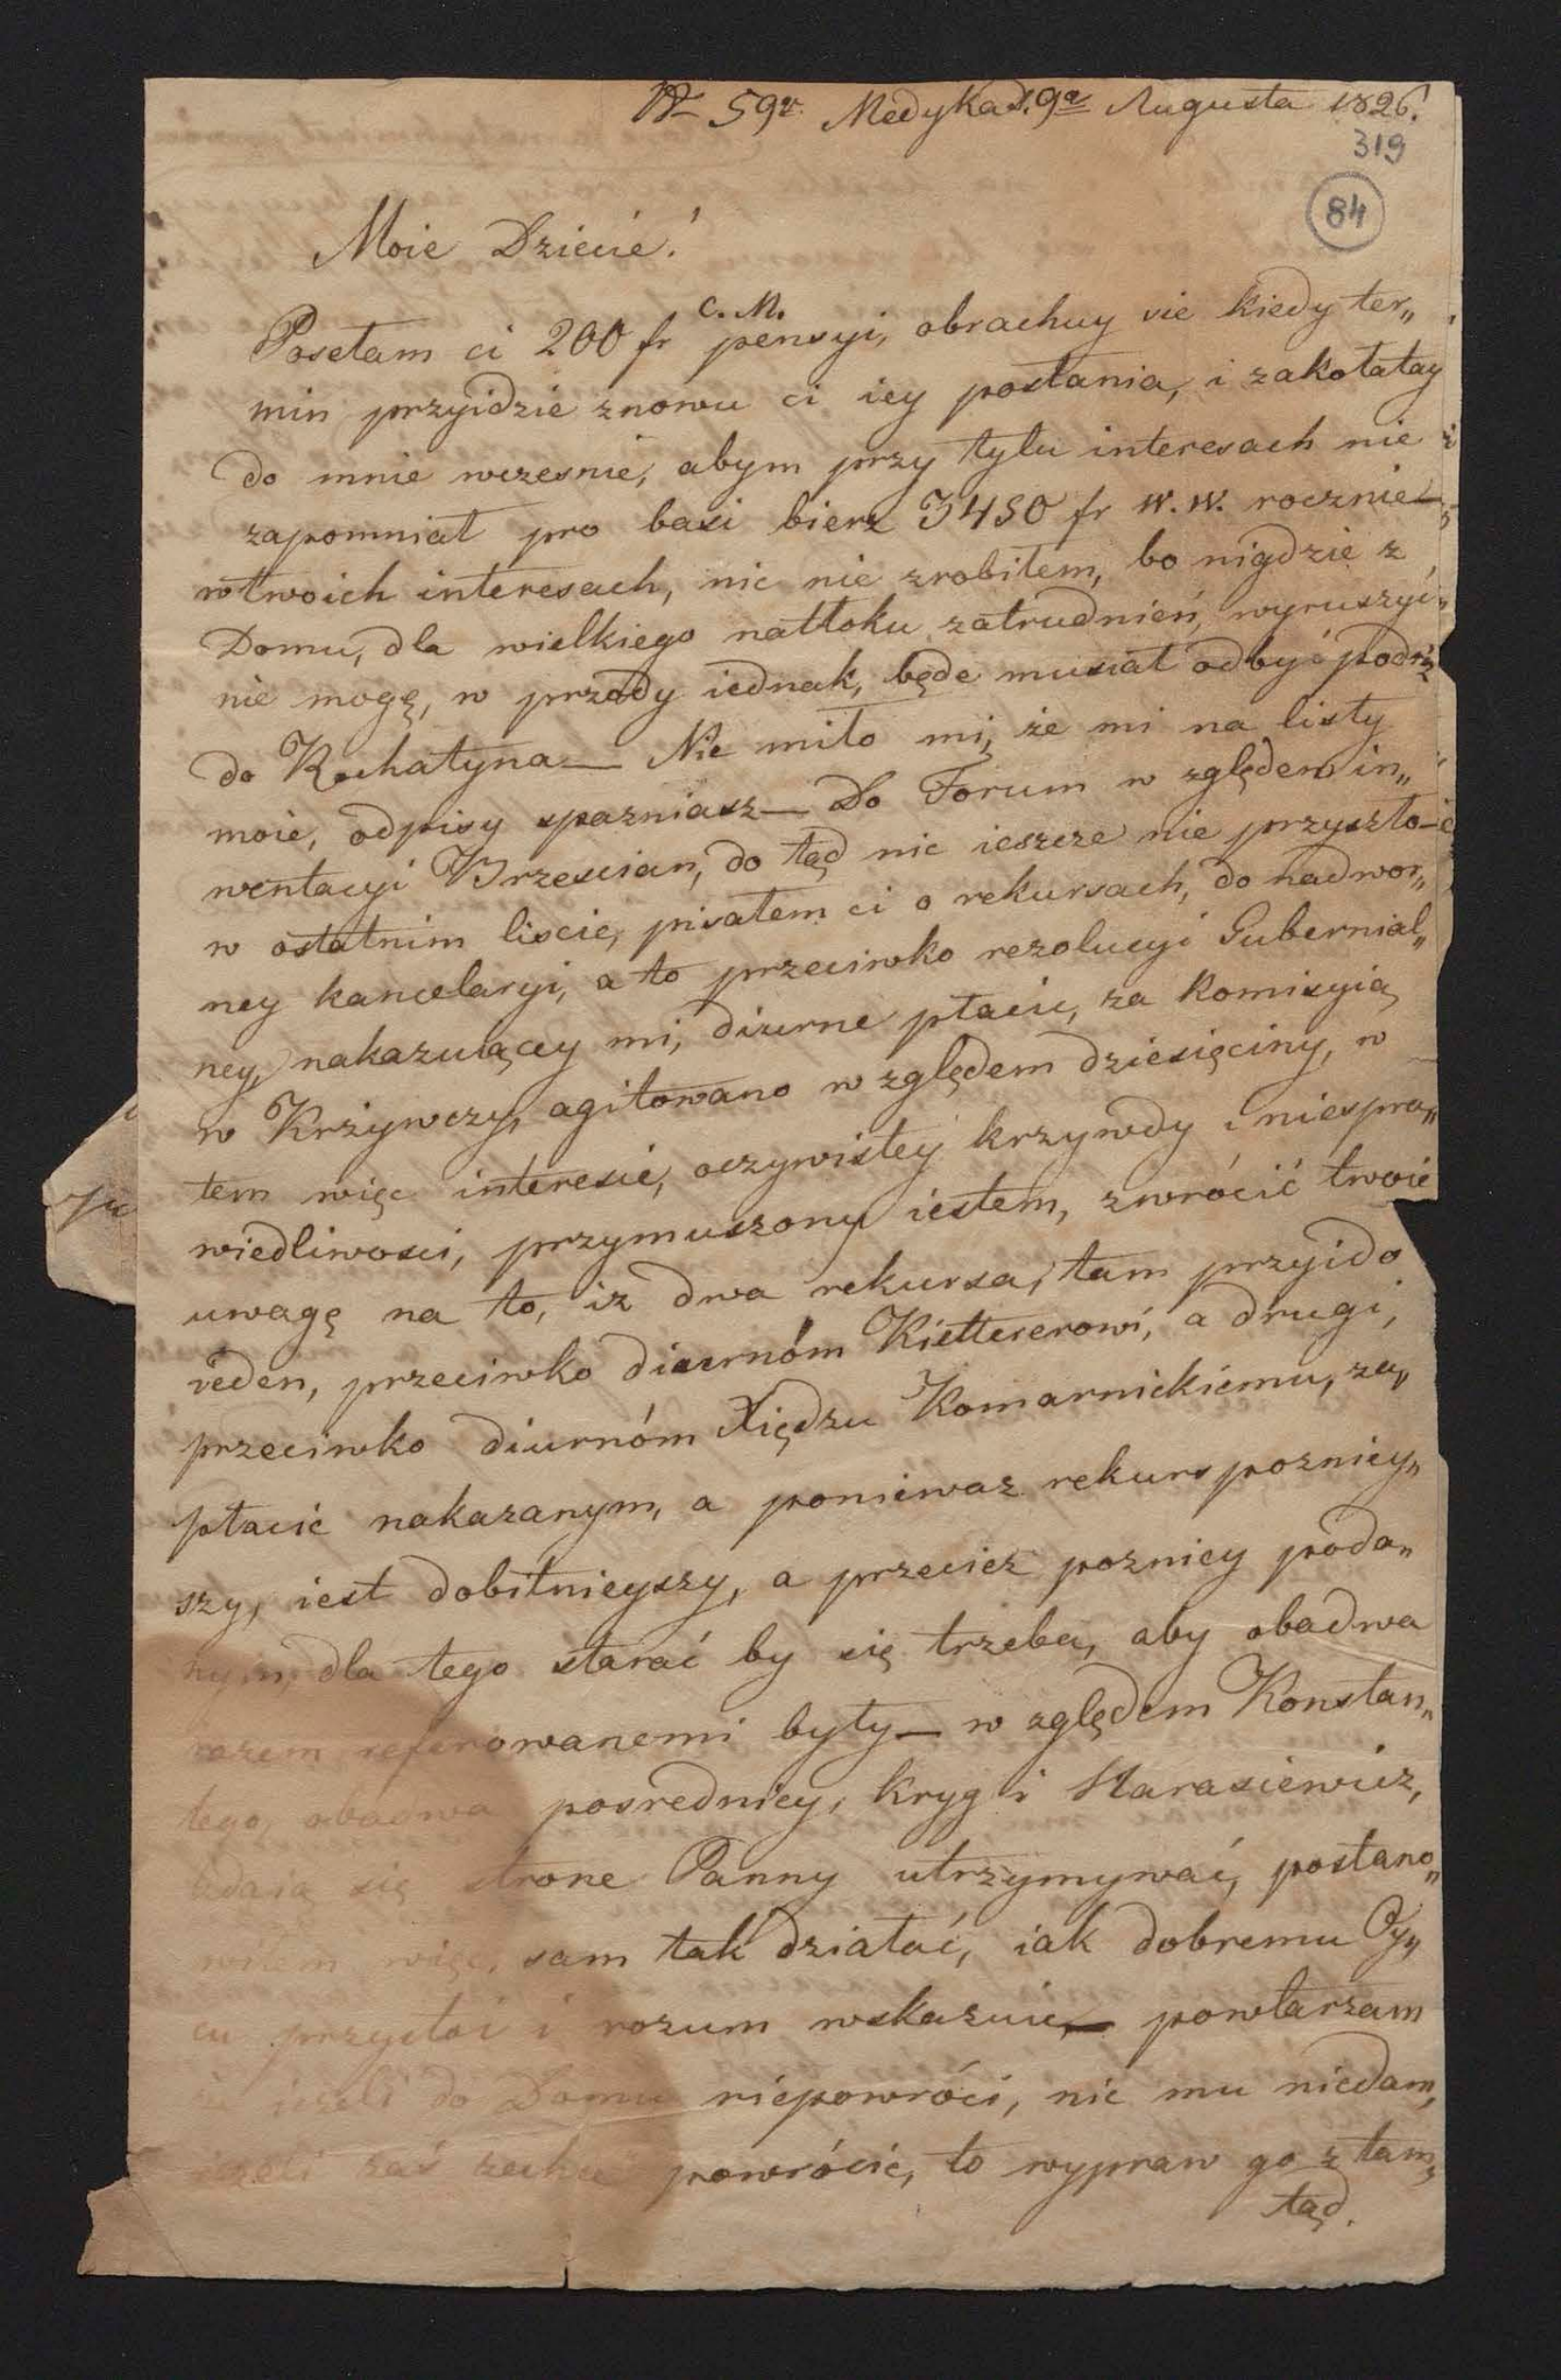 N 59. Medyka d. 9a Augusta 1826.
319
84
Moie Dziecie!
C. M.
Posełam ci 200 fr pensyi, obrachuy sie kiedy ter„
min przyidzie znowu ci iey posłania, i zakołatay
do mnie wczesnie, abym przy tylu interesach nie
zapomniał pro basi bierz 3450 fr W. W. rocznie—
w twoich interesach, nic nie zrobiłem, bo nigdzie z
Domu, dla wielkiego natłoku zatrudnień, wyruszyć
nie mogę, w przody iednak, będe musiał odbyć podróż
do Rohatyna— Nie miło mi, że mi na listy
moie, odpisy spazniasz— Do Forum w zględem in„
wentacyi Brzescian, do tąd nic ieszcze nie przyszło—
w ostatnim liscie, pisałem ci o rekursach, do nadwor„
ney kancelaryi, a to przeciwko rezolucyi Gubernial„
ney, nakazuiącey mi, diurne płacic, za komisyią
w Krzywczy, agitowano w zględem dziesięciny, w
tem więc interesie, oczywistey krzywdy i niespra„
wiedliwosci, przymuszony iestem, zwrócić twoie
uwagę na to, iz dwa rekursa, tam przyido
ieden, przeciwko diurnóm Kiettererowi, a drugi,
przeciwko diurnóm Xiędzu Komarnickiemu, za„
płacić nakazanym, a poniewaz rekurs pozniey„
szy, iest dobitnieyszy, a przeciez pozniey poda„
nym, dla tego starać by się trzeba, aby obadwa
razem referowanemi były— w zględem Konstan„
tego, obadwa posrednicy, Kryg i Harasiewicz,
zdaią się strone Panny utrzymywać, postano„
wiłem więc, sam tak działać, iak dobremu Oy„
cu przystoi i rozum wskazuie,— powtarzam
iezeli do Domu niepowróci, nic mu niedam,
iezeli zaś zechce powrócić, to wypraw go z tam„
tąd.